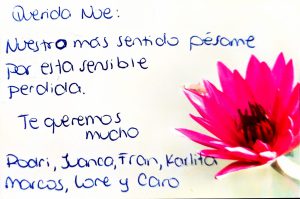 Querida Nue:
Nuestro más sentido pésame
por esta sensible
perdida.
Te queremos
mucho
Rodri, Juanco, Fran, Karlita
Marcos, Lore y Caro